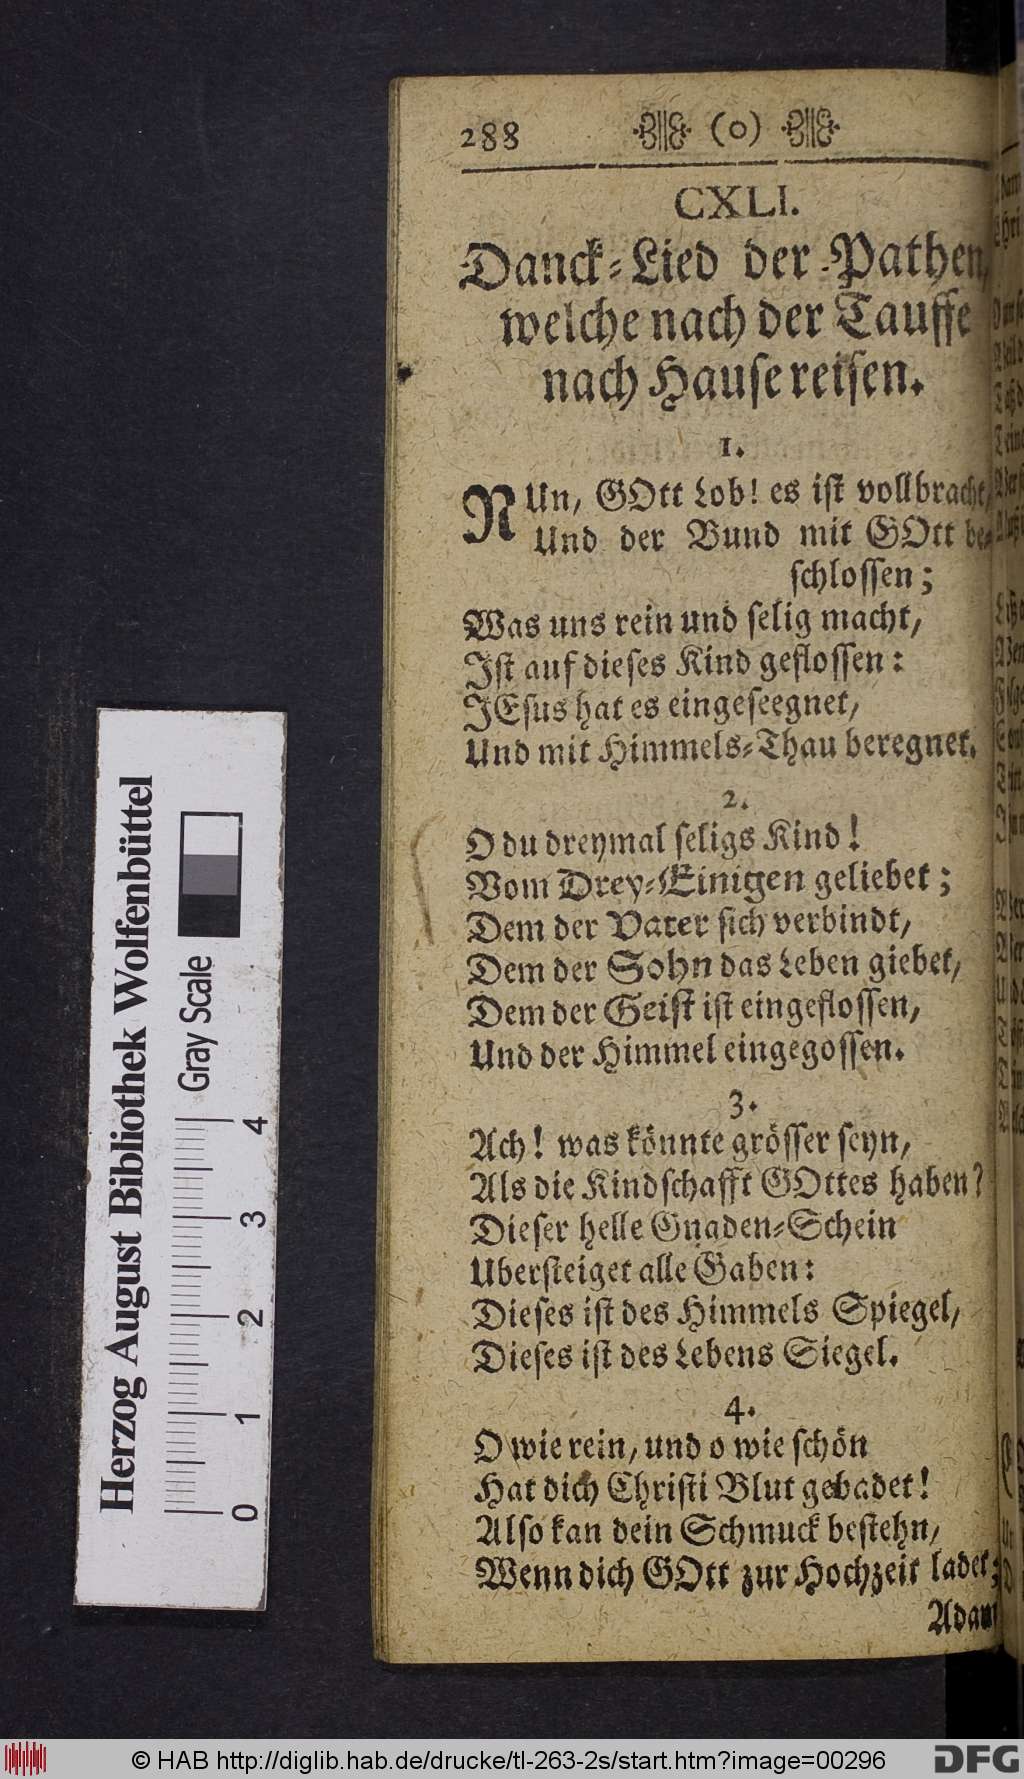 288 (o)
CXLI.
Danck-Lied der Pathen,
welche nach der Tauffe
nach Hause reisen.
1.
NUn, GOtt Lob! es ist vollbracht,
Und der Bund mit GOtt be-
schlossen;
Was uns rein und selig macht,
Ist auf dieses Kind geflossen:
JEsus hat es eingeseegnet,
Und mit Himmels-Thau beregnet.
2.
O du dreymal seligs Kind!
Vom Drey-Einigen geliebet;
Dem der Vater sich verbindt,
Dem der Sohn das Leben giebet,
Dem der Geist ist eingeflossen,
Und der Himmel eingegossen.
3.
Ach! was könnte grösser seyn,
Als die Kindschafft GOttes haben?
Dieser helle Gnaden-Schein
Ubersteiget alle Gaben:
Dieses ist des Himmels Spiegel,
Dieses ist des Lebens Siegel.
4.
O wie rein, und o wie schön
Hat dich Christi Blut gebadet!
Also kan dein Schmuck bestehn,
Wenn dich GOtt zur Hochzeit ladet;
Adam
Herzog August Bibliothek Wolfenbüttel
Gray Scale
0 1 2 3 4
© HAB http://diglib.hab.de/drucke/tl-263-2s/start.htm?image=00296
DFG